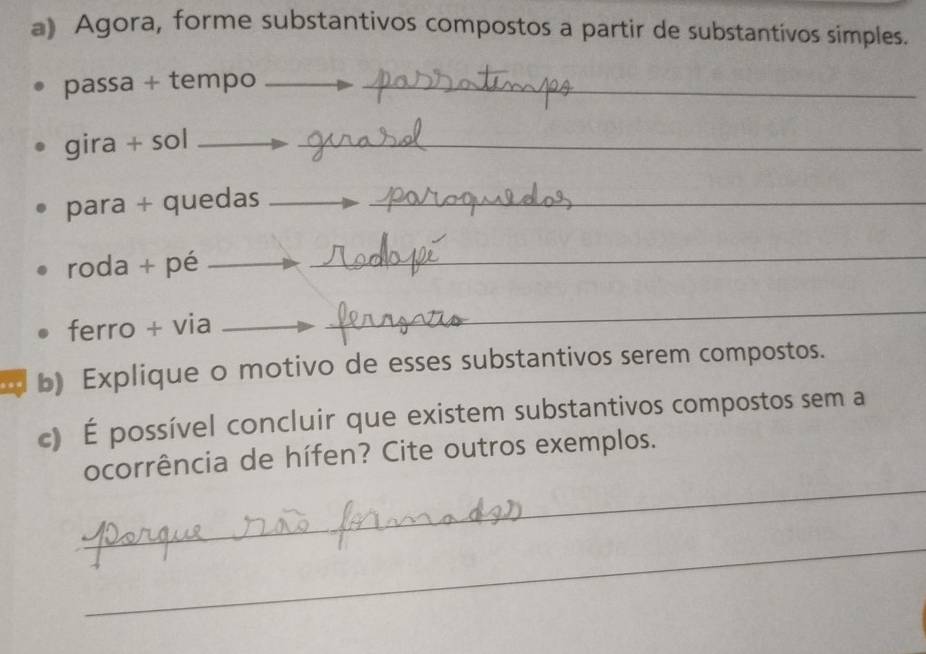 a) Agora, forme substantivos compostos a partir de substantivos simples.
• passa + tempo passatempo
• gira + sol girasol
• para + quedas paraquedas
• roda + pé Rodapé
• ferro + via
b) Explique o motivo de esses substantivos serem compostos.
c) É possível concluir que existem substantivos compostos sem a
ocorrência de hífen? Cite outros exemplos.
Porque não formados